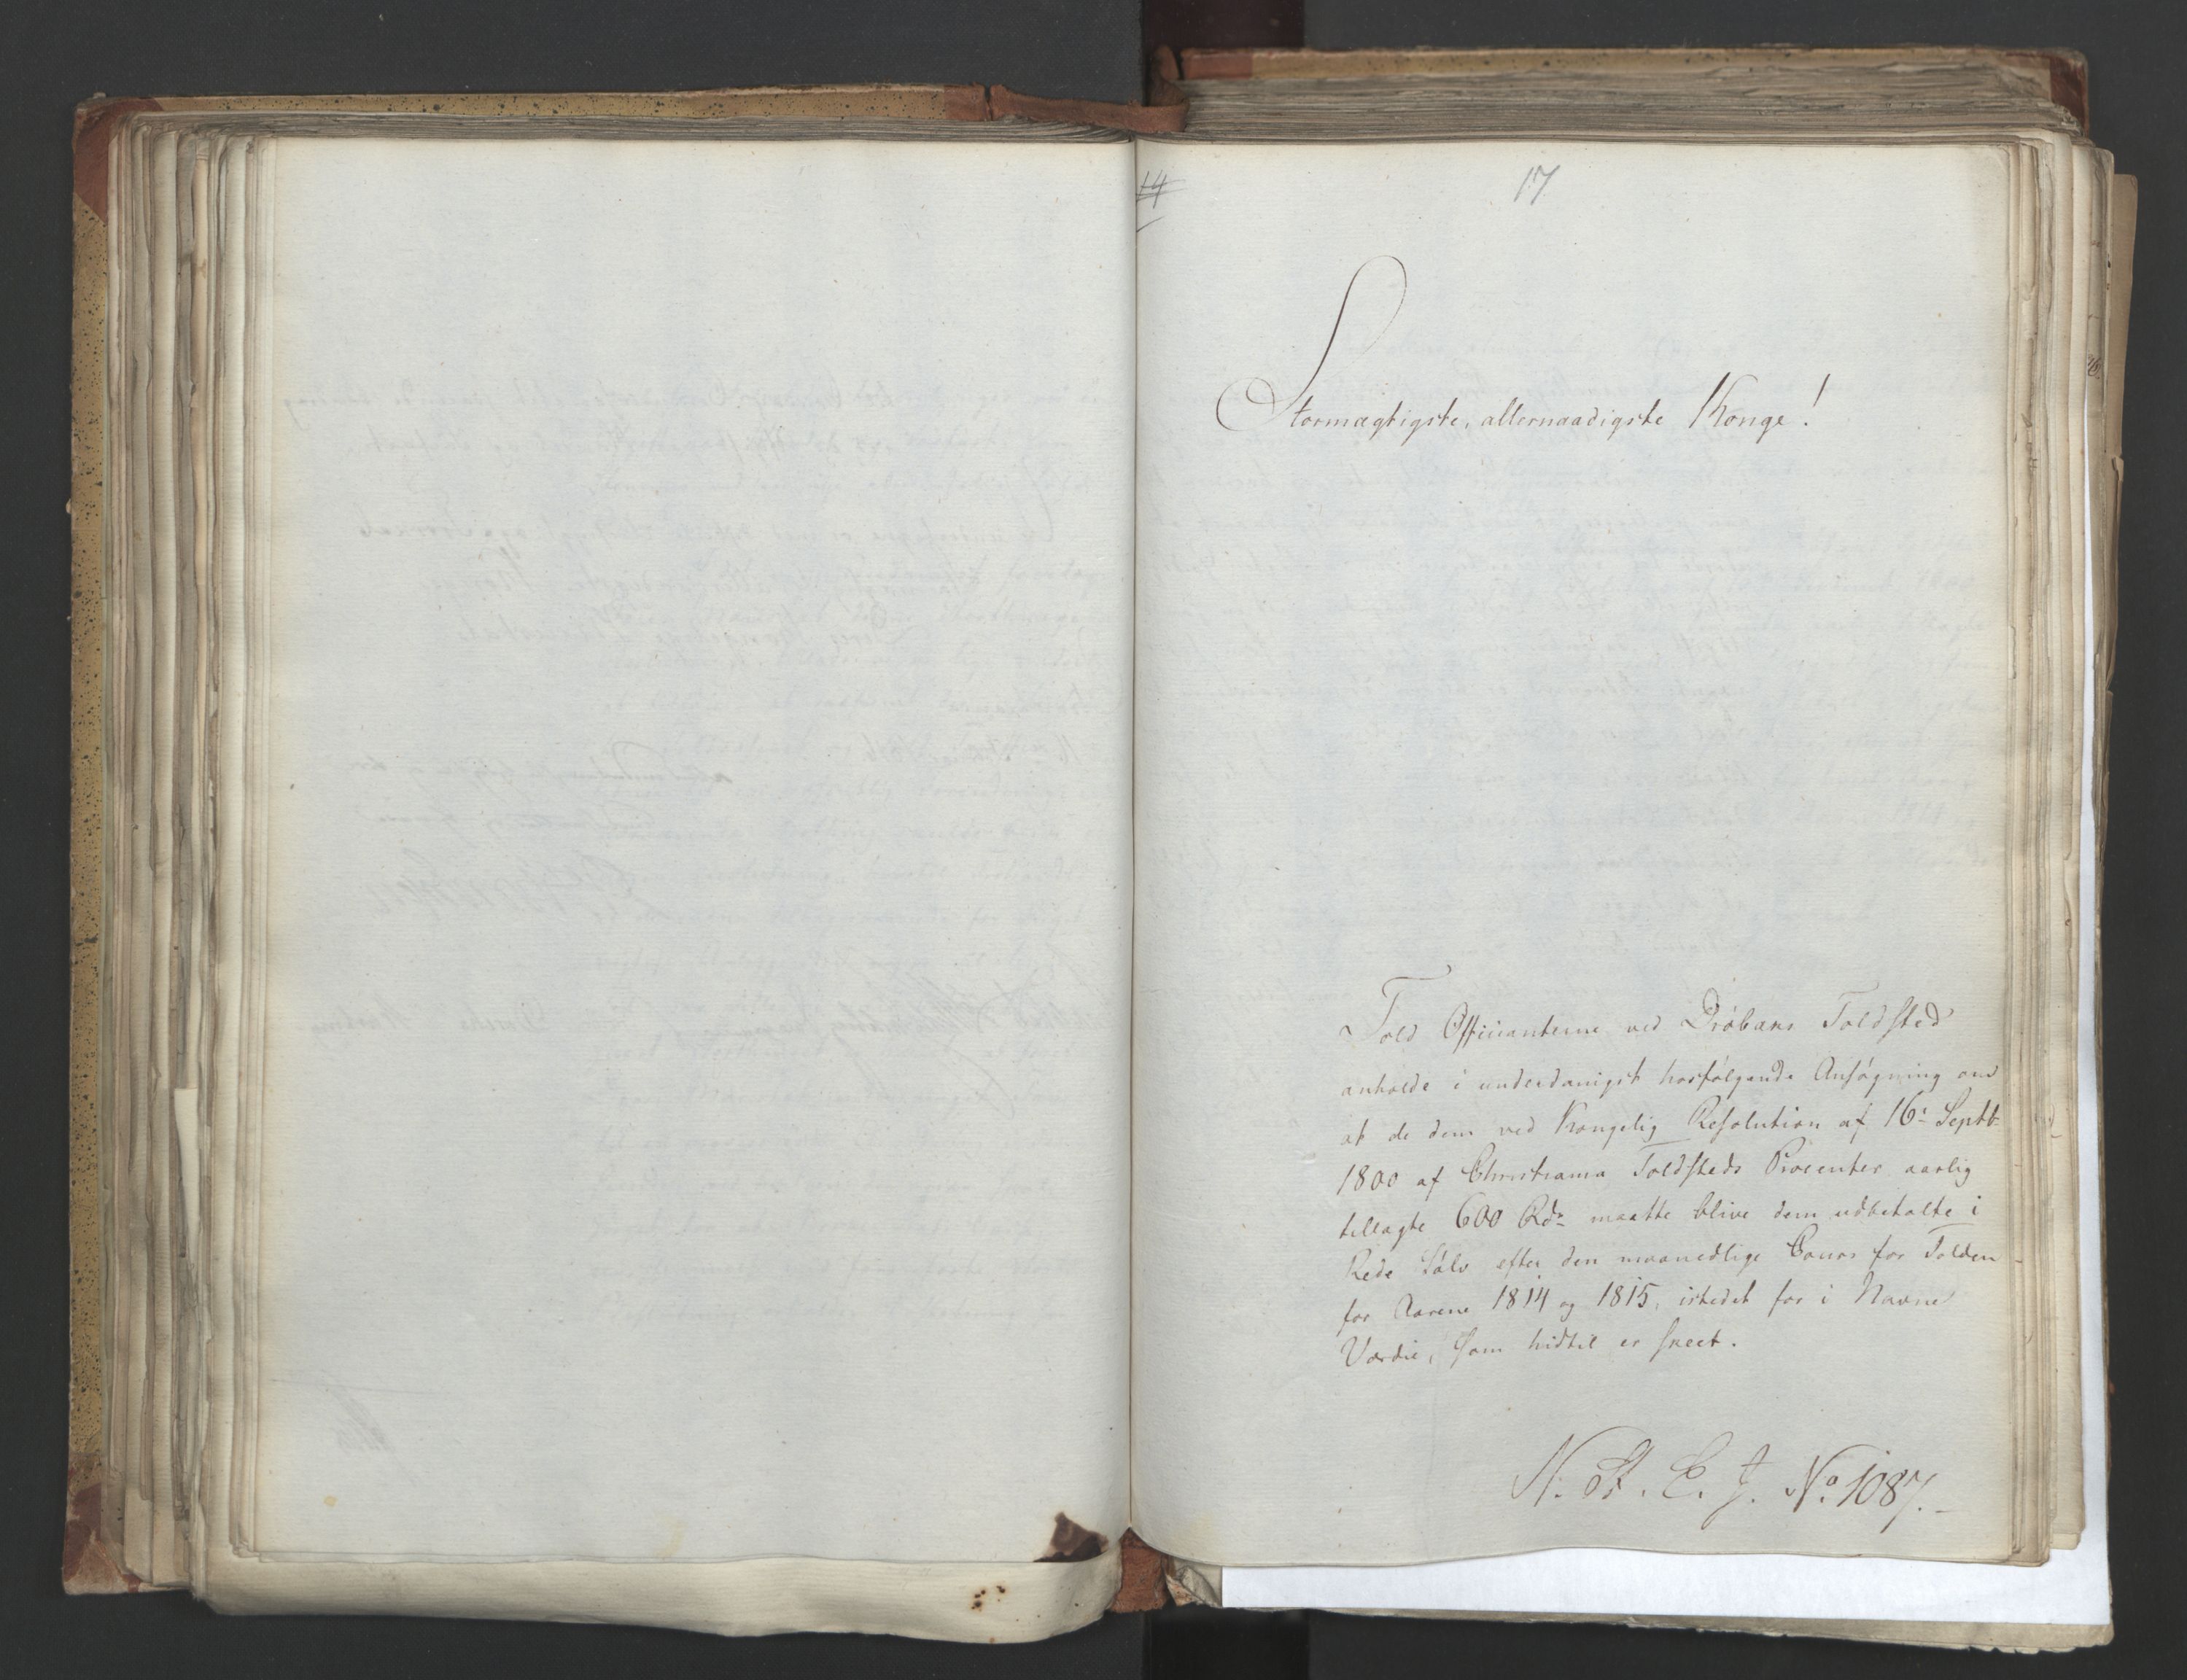 14
17
Stormægtigste, allernaadigste Konge!
Told Officianterne ved Drøbaks Toldsted
anholde i underdanigst hosfølgende Ansøgning om
at de dem ved Kongelig Resolution af 16de Septbr
1800 af Christiania Toldsteds Procenter aarlig
tillagte 600 Rdr maatte blive dem udbetalte i
Rede Sølv efter den maanedlige Cours for Tolden
for Aarene 1814 og 1815, istedet for i Navne
Værdie, som hidtil er skeet.
N. St. E. J. No. 1087.-